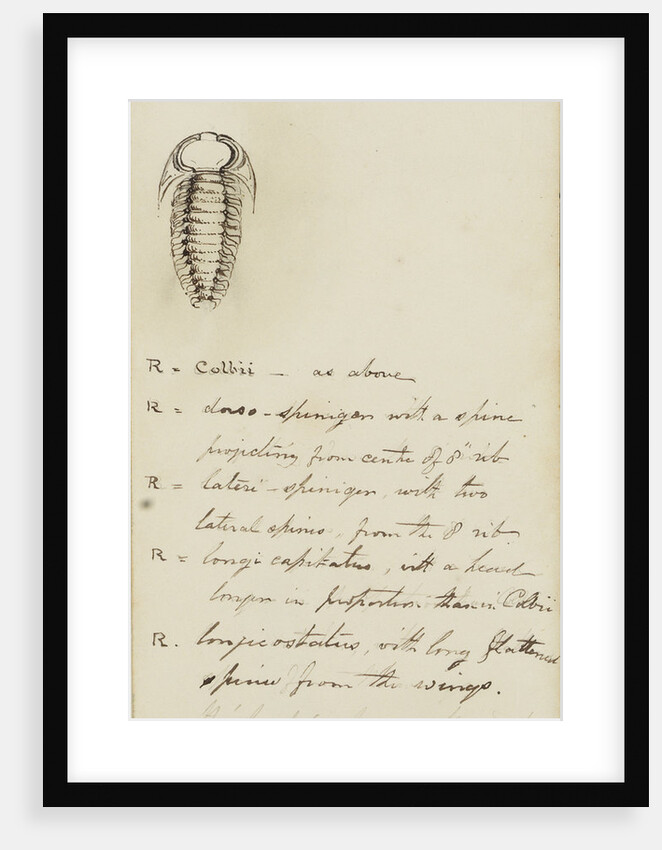 R = Colbii — as above
R = dorso-spiniger with a spine
projecting from centre of 8" rib
R = lateri-spiniger, with two
lateral spines, from the 8 rib
R = longi capitatus, with a head
longer in proportion than in Colbii
R. longicostatus, with long flattened
spines from the wings.